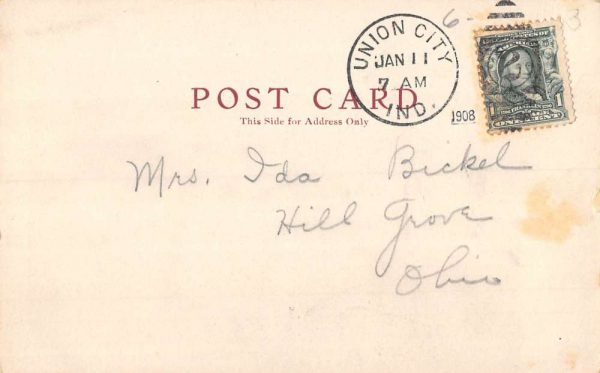 6- 3
UNION CITY
JAN 11
7 AM
IND.
1908
POST CARD
This Side for Address Only
1 1
ONE CENT
Mrs. Ida Bickel
Hill Grove
Ohio